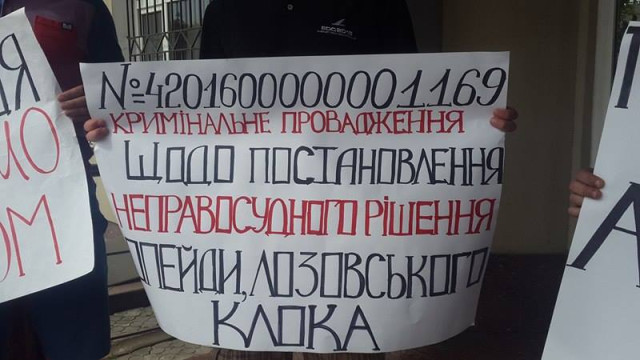 №42016000000001169
КРИМІНАЛЬНЕ ПРОВАДЖЕННЯ
ЩОДО ПОСТАНОВЛЕННЯ
НЕПРАВОСУДНОГО РІШЕННЯ
ОПЕЙДИ, ЛОЗОВСЬКОГО
КЛОКА